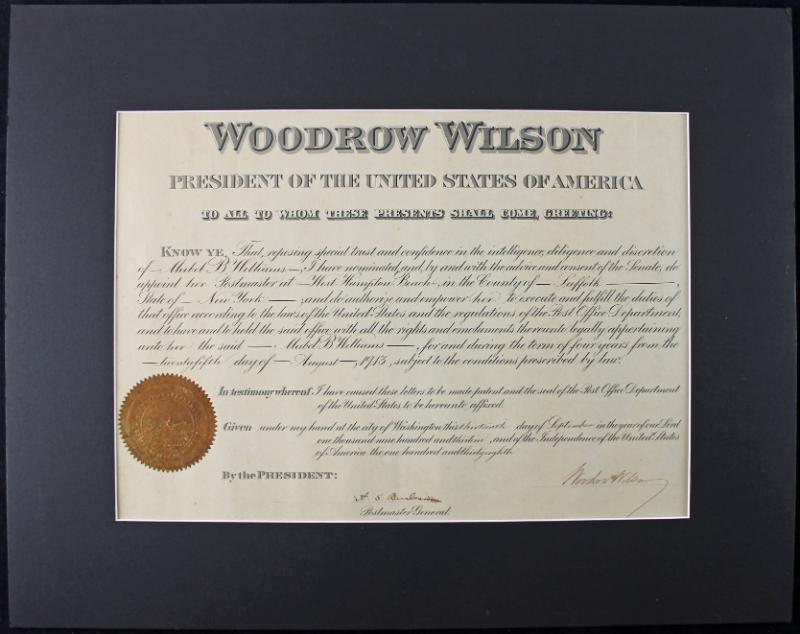 WOODROW WILSON
PRESIDENT OF THE UNITED STATES OF AMERICA
TO ALL TO WHOM THESE PRESENTS SHALL COME, GREETING:
KNOW YE, That, reposing special trust and confidence in the intelligence, diligence and discretion
of — Mabel B Williams —, I have nominated, and, by and with the advice and consent of the Senate, do
appoint her Postmaster at — West Hampton Beach — in the County of — Suffolk —,
State of — New York —, and do authorize and empower her to execute and fulfill the duties of
that office according to the laws of the United States and the regulations of the Post Office Department,
and to have and to hold the said office with all the rights and emoluments thereunto legally appertaining
unto her the said — Mabel B Williams —, for and during the term of four years from the
— twentyfifth day of — August —, 1913, subject to the conditions prescribed by law.
In testimony whereof I have caused these letters to be made patent and the seal of the Post Office Department
of the United States to be hereunto affixed.
Given under my hand at the city of Washington this day of September in the year of our Lord
one thousand nine hundred and thirteen, and of the Independence of the United States
of America the one hundred and thirtyeighth.
By the PRESIDENT:
Woodrow Wilson
A. S. Burleson
Postmaster General.